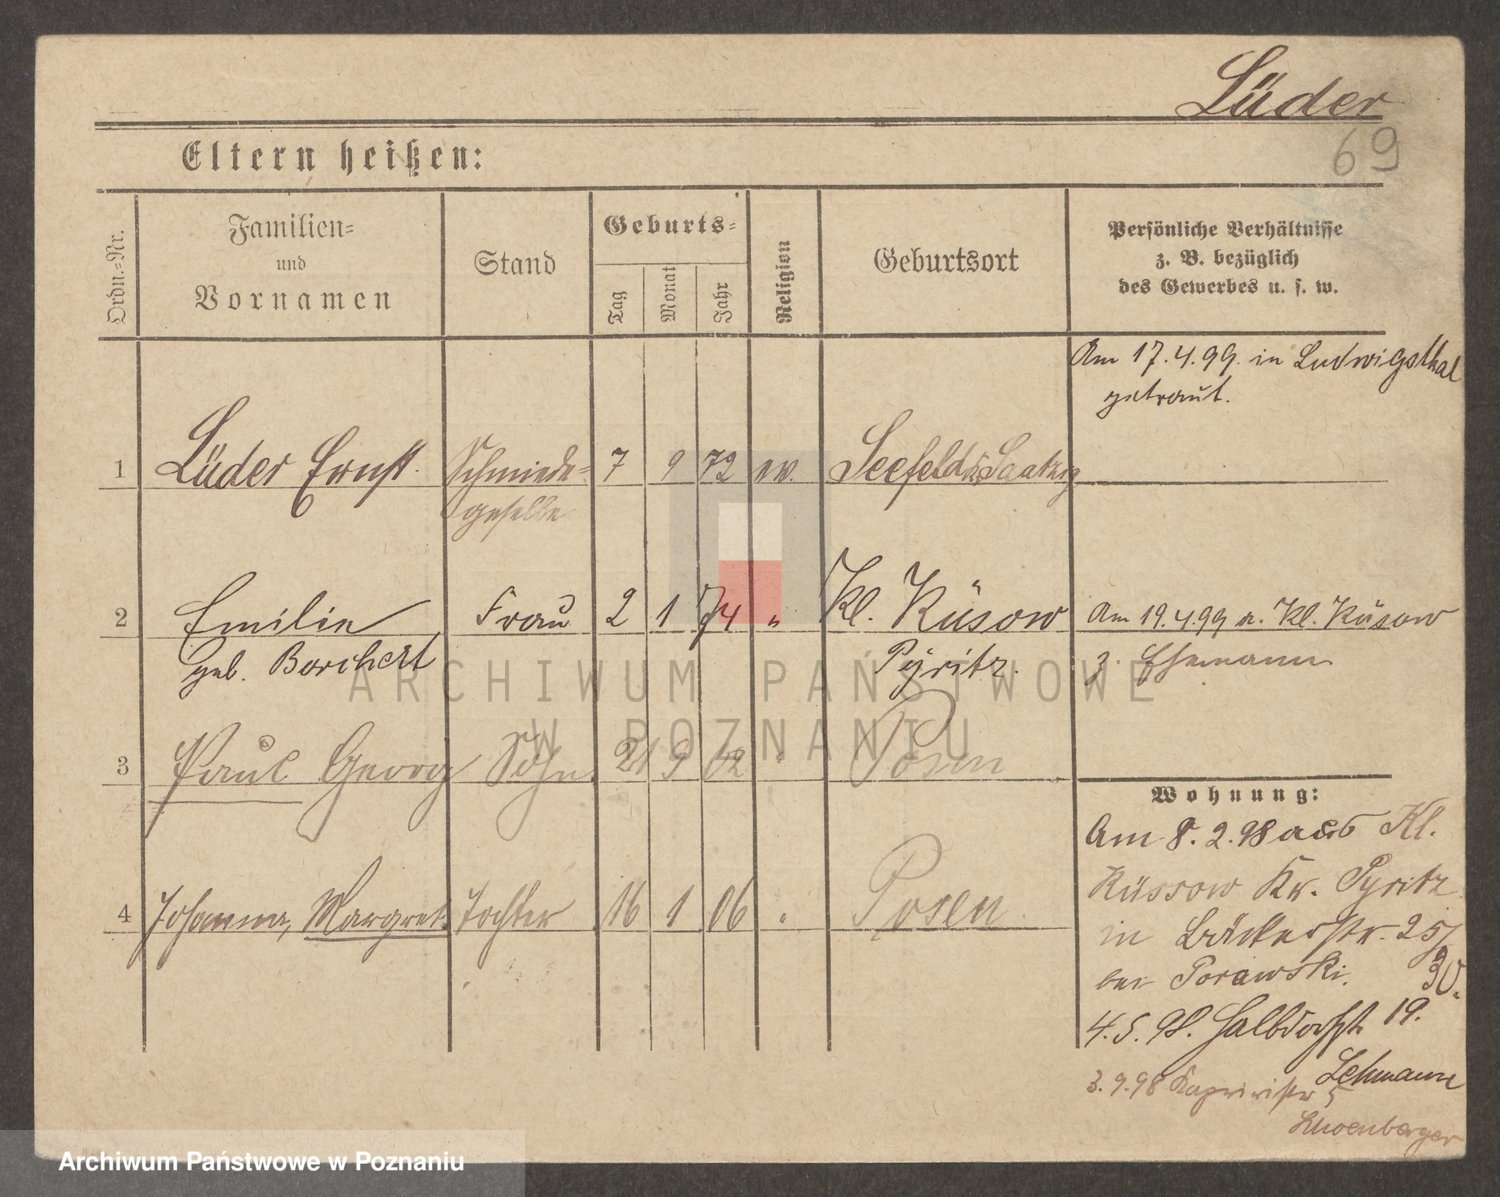 Lüder
69
Eltern heißen:
Ordn.-Nr.
Familien-
und
Vornamen
Stand
Geburts-
Tag
Monat
Jahr
Religion
Geburtsort
Persönliche Verhältnisse
z. B. bezüglich
des Gewerbes u. s. w.
Am 17.4.99. in Ludwigsthal
getraut.
1 Lüder Ernst. Schmiede- 7 9 72 ev. Seefeld Saatzig
geselle
2 Emilie Frau 2 1 74 " Kl. Küsow Am 19.4.99 a. Kl. Küsow
geb. Borchert Pyritz. z. Ehemann
3 Paul Georg Sohn 21 9 02 " Posen
Wohnung:
Am 8.2.98 aus Kl.
Küssow Kr. Pyritz
4 Johanna, Margret. Tochter 16 1 06 " Posen
in Bäckerstr. 25/
bei Porawski. 30.
4.5.98. Halbdorfstr 19.
Lehmann
3.9.98 Kaprivistr 5
ARCHIWUM PAŃSTWOWE
W POZNANIU
Archiwum Państwowe w Poznaniu